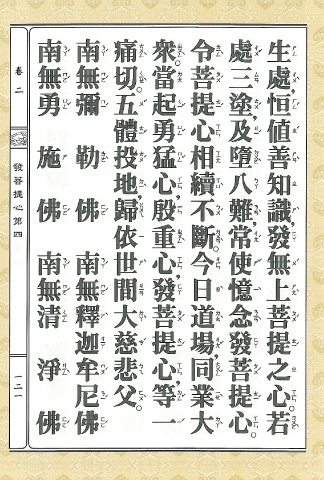 生處,恒值善知識發無上菩提之心,若
處三塗,及墮八難,常使憶念發菩提心,
令菩提心相續不斷。今日道場,同業大
衆,當起勇猛心,殷重心,發菩提心,等一
痛切,五體投地,歸依世間大慈悲父。
南無彌勒佛 南無釋迦牟尼佛
南無勇施佛 南無清淨佛
卷二 發菩提心第四 一二一